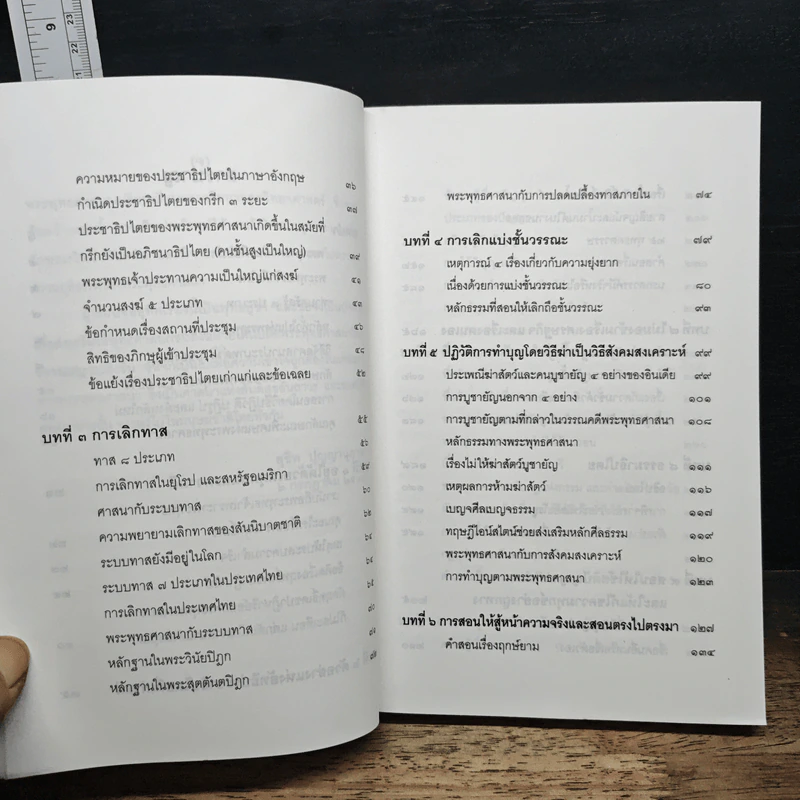 9
23
22
21
ความหมายของประชาธิปไตยในภาษาอังกฤษ ๓๖
กำเนิดประชาธิปไตยของกรีก ๓ ระยะ ๓๗
ประชาธิปไตยของพระพุทธศาสนาเกิดขึ้นในสมัยที่
กรีกยังเป็นอภิชนาธิปไตย (คนชั้นสูงเป็นใหญ่) ๓๙
พระพุทธเจ้าประทานความเป็นใหญ่แก่สงฆ์ ๔๑
จำนวนสงฆ์ ๕ ประเภท ๔๓
ข้อกำหนดเรื่องสถานที่ประชุม ๔๖
สิทธิของภิกษุผู้เข้าประชุม ๔๘
ข้อแย้งเรื่องประชาธิปไตยเก่าแก่และข้อเฉลย ๕๒
บทที่ ๓ การเลิกทาส ๕๕
ทาส ๘ ประเภท ๕๖
การเลิกทาสในยุโรป และสหรัฐอเมริกา ๕๙
ศาสนากับระบบทาส ๖๐
ความพยายามเลิกทาสของสันนิบาตชาติ ๖๕
ระบบทาสยังมีอยู่ในโลก
ระบบทาส ๗ ประเภทในประเทศไทย
การเลิกทาสในประเทศไทย
พระพุทธศาสนากับระบบทาส
หลักฐานในพระวินัยปิฎก
หลักฐานในพระสุตตันตปิฎก
พระพุทธศาสนากับการปลดเปลื้องทาสภายใน ๗๔
บทที่ ๔ การเลิกแบ่งชั้นวรรณะ ๗๙
เหตุการณ์ ๔ เรื่องเกี่ยวกับความยุ่งยาก
เนื่องด้วยการแบ่งชั้นวรรณะ ๘๐
หลักธรรมที่สอนให้เลิกถือชั้นวรรณะ ๙๓
บทที่ ๕ ปฏิวัติการทำบุญโดยวิธีฆ่าเป็นวิธีสังคมสงเคราะห์ ๙๙
ประเพณีฆ่าสัตว์และคนบูชายัญ ๔ อย่างของอินเดีย ๙๙
การบูชายัญนอกจาก ๔ อย่าง ๑๐๑
การบูชายัญตามที่กล่าวในวรรณคดีพระพุทธศาสนา ๑๐๘
หลักธรรมทางพระพุทธศาสนา
เรื่องไม่ให้ฆ่าสัตว์บูชายัญ ๑๑๑
เหตุผลการห้ามฆ่าสัตว์ ๑๑๖
เบญจศีลเบญจธรรม ๑๑๗
ทฤษฎีไอน์สไตน์ช่วยส่งเสริมหลักศีลธรรม ๑๑๙
พระพุทธศาสนากับการสังคมสงเคราะห์ ๑๒๐
การทำบุญตามพระพุทธศาสนา ๑๒๓
บทที่ ๖ การสอนให้สู้หน้าความจริงและสอนตรงไปตรงมา ๑๒๗
คำสอนเรื่องฤกษ์ยาม ๑๓๔